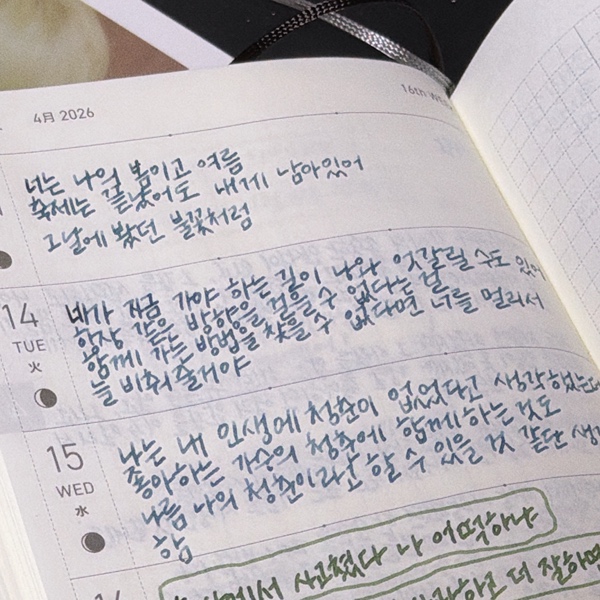 4月 2026
16th
너는 나의 봄이고 여름
축제는 끝났어도 내게 남아있어
그날에 봤던 불꽃처럼
14
TUE
火
내가 지금 가야 하는 길이 나와 엇갈릴 수도 있어
항상 같은 방향을 걸을 수 없다는 걸
함께 가는 방법을 찾을 수 없다면 너를 멀리서
늘 비춰줄게야
15
WED
水
나는 내 인생에 청춘이 없었다고 생각했는데
좋아하는 가수의 청춘에 함께하는 것도
나름 나의 청춘이라고 할 수 있을 것 같단
함
사고쳤다 나 어떡하냐
더 잘하면